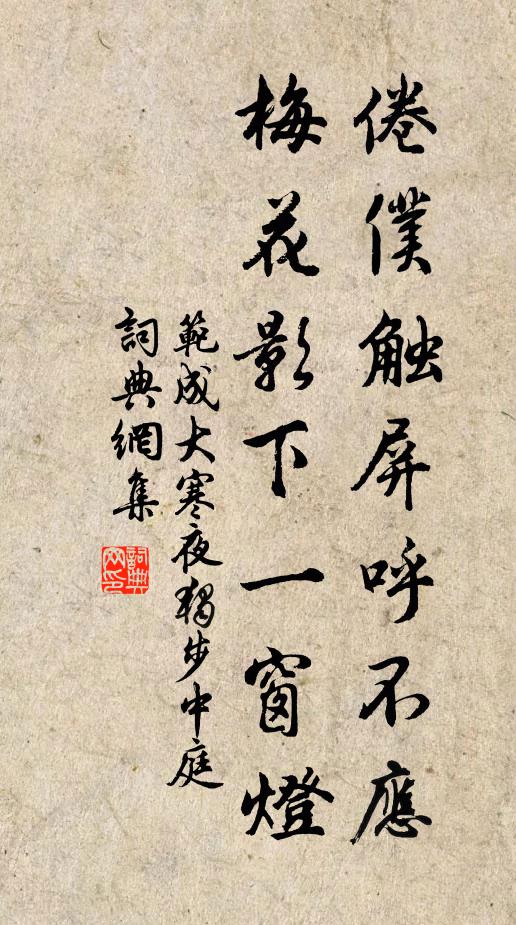 倦僕触屏呼不應
梅花影下一窗燈
範成大寒夜獨步中庭
詞典網集
詞典網印